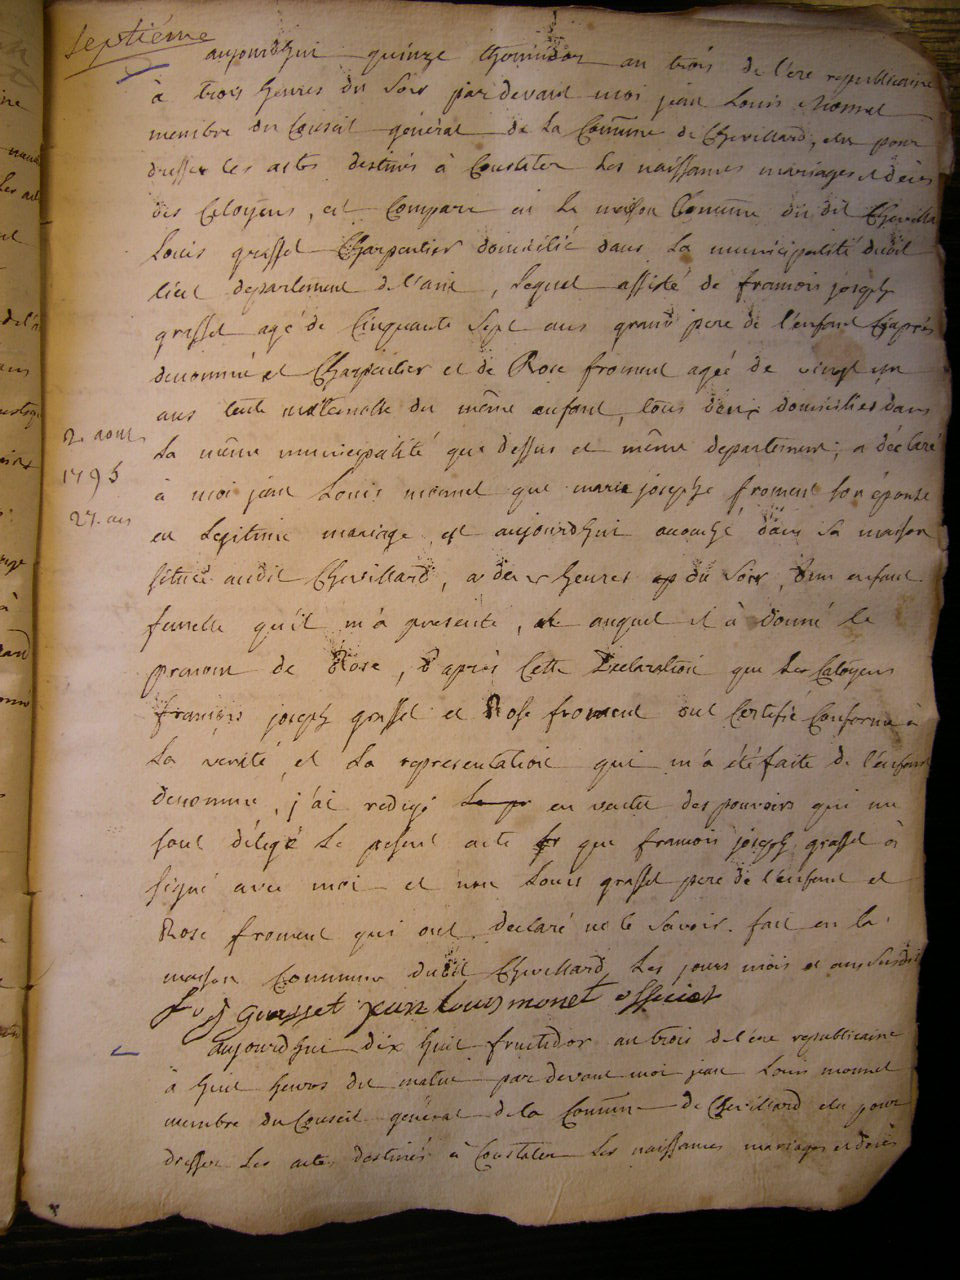 Septiéme
aujourdhui quinze thermidor an trois de l'ere republicaine
à trois heures du Soir pardevant moi jean Louis Monnet
membre du Conseil général de la Commune de Chevillard, elu pour
dresser les actes destinés à Constater Les naissances mariages et décès
des Citoyens, est Comparu en La maison Commune du dit Chevilla
Louis grasset Charpentier domicilié dans La municipalité dudit
lieu departement de l'ain, Lequel assisté de francois joseph
grasset agé de Cinquante Sept ans grand pere de l'enfant Ciaprès
denommé et Charpentier et de Rose froment agée de vingt un
ans tente maternelle du même enfant, tous deux domiciliés dans
La même municipalité que dessus et même departement, a déclaré
2 aout
1795
27. ans
à moi jean Louis monnet que marie josephe froment Son épouse
en Legitime mariage, est aujourdhui accouché dans Sa maison
Située audit Chevillard, a deux heures du Soir, d'un enfant
femelle qu'il m'a presenté, auquel il à donné le
prenom de Rose, d'après Cette Declaration que Les Citoyens
francois joseph grasset et Rose froment ont Certifié Conforme à
La verité, et La representation qui m'a été faite de l'enfant
denommé, j'ai redigé en vertu des pouvoirs qui me
Sont délégé Le présent acte que francois joseph grasset à
Signé avec moi et non Louis grasset pere de l'enfant et
Rose froment qui ont declaré ne le Savoir. fait en la
maison Commune dudit Chevillard Les jours mois et an Susdit
grasset jean louis monet officier
aujourdhui dix huit fructidor an trois de l'ére republicaine
à huit heures du matin par devant moi jean Louis monnet
membre du Conseil général de la Commune de Chevillard elu pour
dresser Les actes destinés à Constater Les naissances mariages et décès